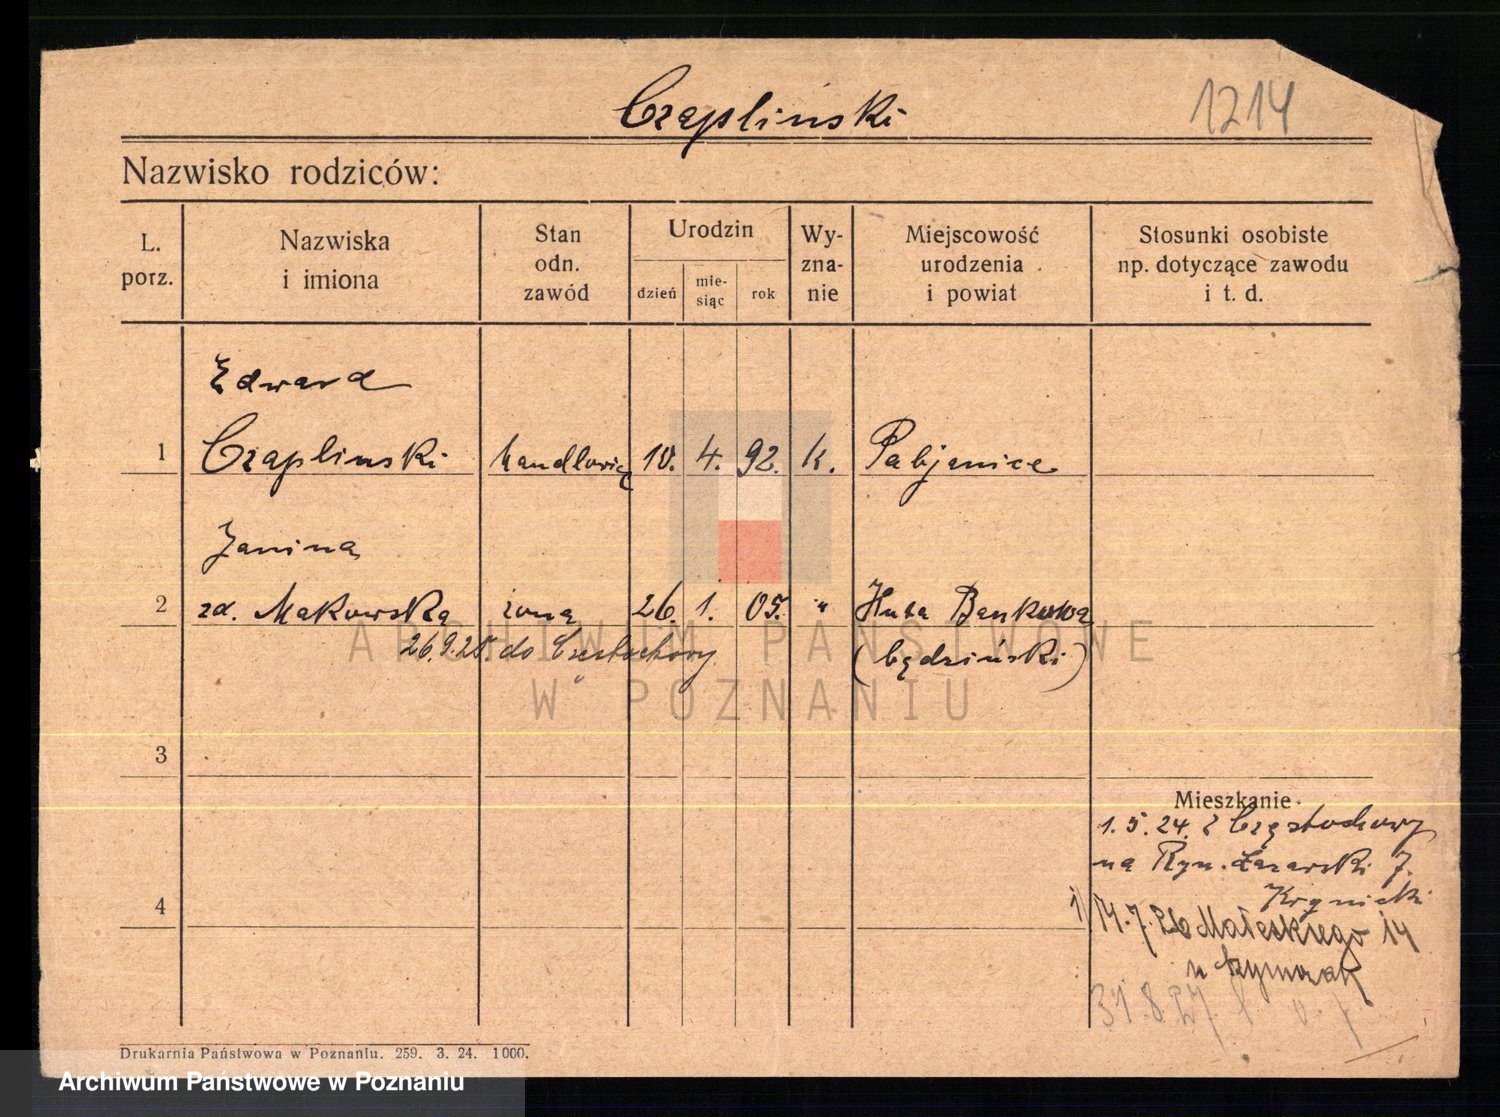 Czapliński
1214
Nazwisko rodziców:
L. porz.
Nazwiska i imiona
Stan odn. zawód
Urodzin
dzień
mie-siąc
rok
Wy-zna-nie
Miejscowość urodzenia i powiat
Stosunki osobiste np. dotyczące zawodu i t. d.
Edward
1 Czaplinski handlowiec 10. 4. 92. k. Pabjanice
Janina
2 zd. Makowska żona 26. 1. 05. " Huta Bankowa
26.9.25. do Częstochowy (będziński)
3
Mieszkanie
1.5.24. z Częstochowy
na Ryn. Łazarski 7.
4
14.7.26 Małeckiego 14
31.8.27
Drukarnia Państwowa w Poznaniu. 259. 3. 24. 1000.
ARCHIWUM PAŃSTWOWE
W POZNANIU
Archiwum Państwowe w Poznaniu